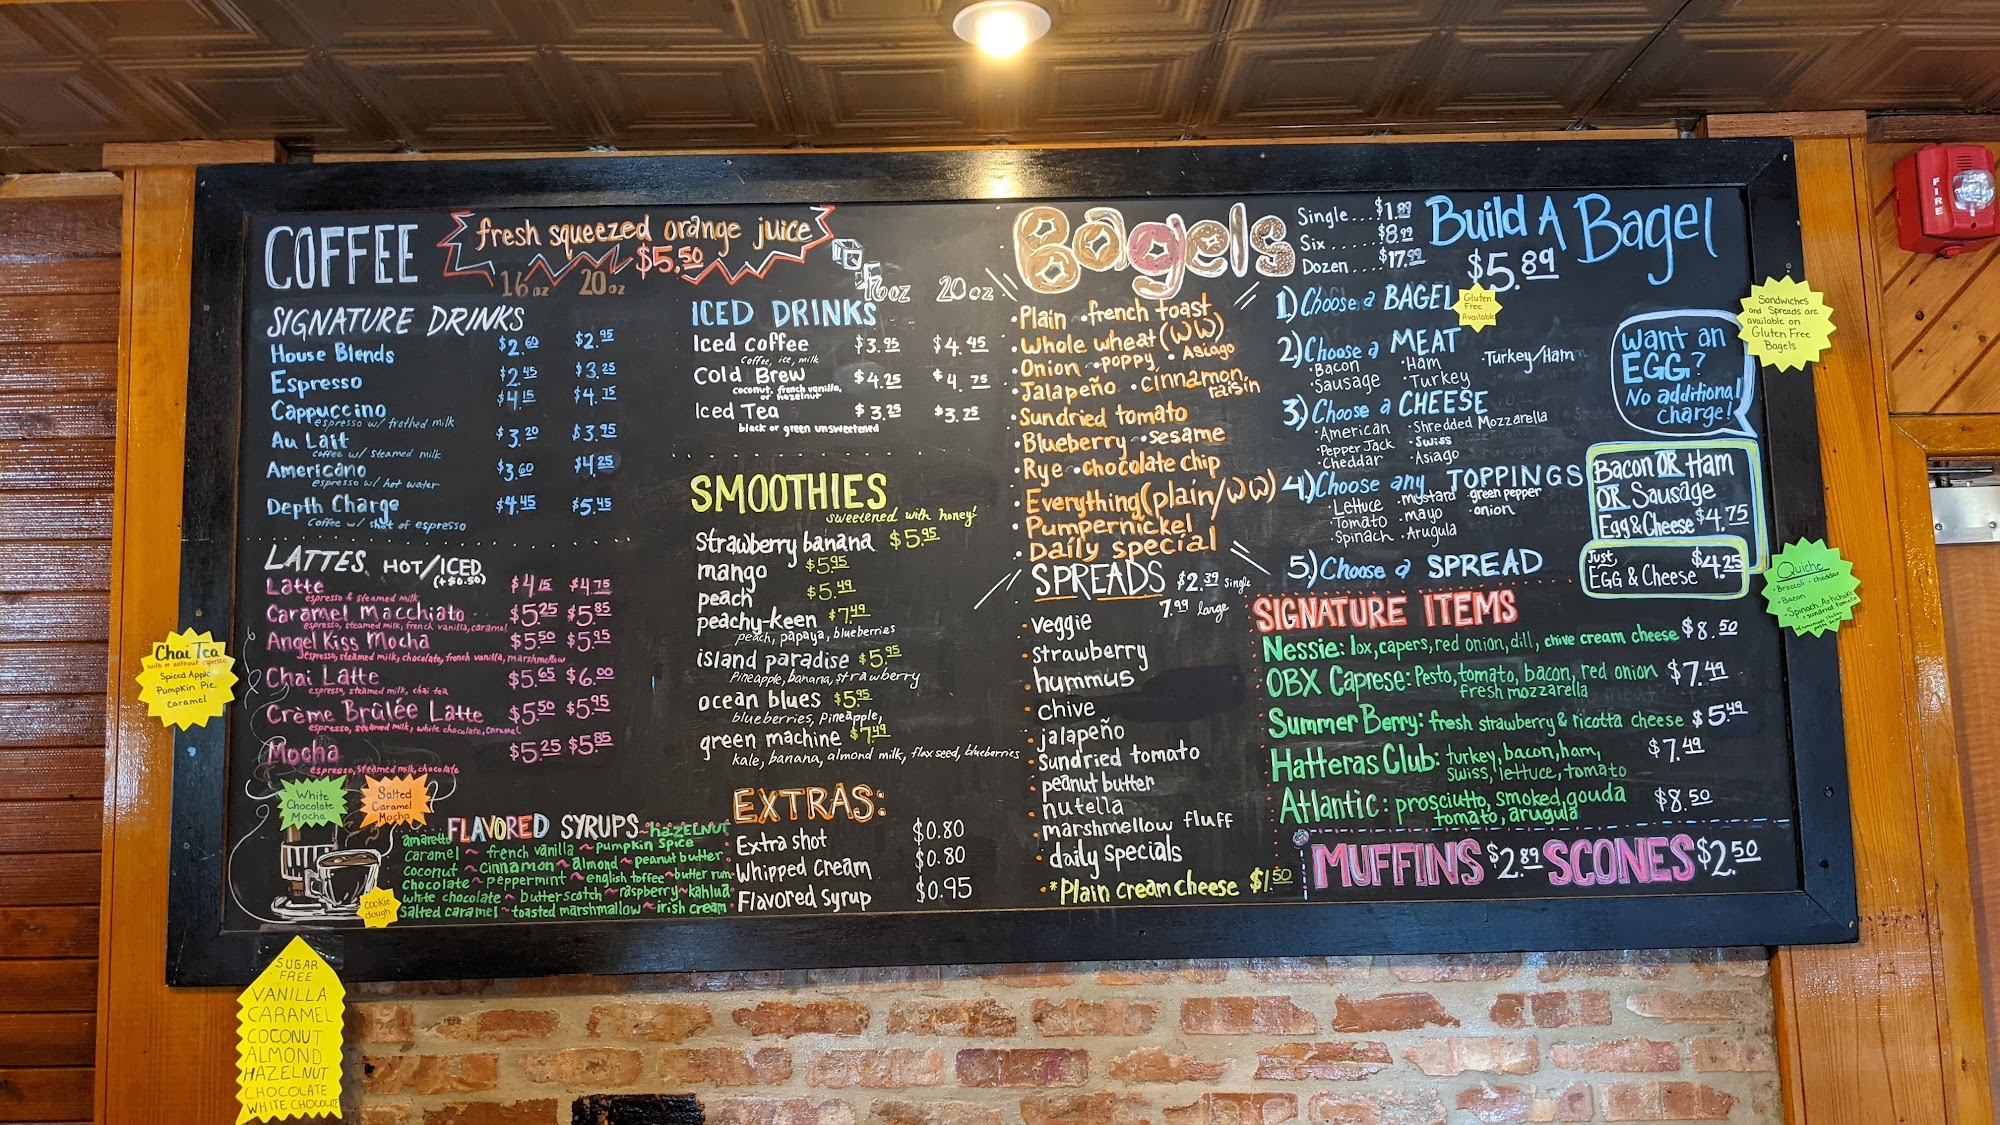 COFFEE
fresh squeezed orange juice
$5.50
16 oz 20 oz
SIGNATURE DRINKS
House Blends $2.60 $2.95
Espresso $2.45 $3.25
Cappuccino $4.15 $4.75
espresso w/ frothed milk
Au Lait $3.20 $3.95
coffee w/ steamed milk
Americano $3.60 $4.25
espresso w/ hot water
Depth Charge $4.45 $5.45
Coffee w/ shot of espresso
LATTES HOT/ICED
(+$0.50)
Latte $4.15 $4.75
espresso & steamed milk
Caramel Macchiato $5.25 $5.85
espresso, steamed milk, french vanilla, caramel
Angel Kiss Mocha $5.50 $5.95
espresso, steamed milk, chocolate, french vanilla, marshmellow
Chai Latte $5.65 $6.00
espresso, steamed milk, chai tea
Crème Brûlée Latte $5.50 $5.95
espresso, steamed milk, white chocolate, caramel
Mocha $5.25 $5.85
espresso, steamed milk, chocolate
Chai Tea
with or without espresso
Spiced Apple
Pumpkin Pie
Caramel
White
Chocolate
Mocha
Salted
Caramel
Mocha
FLAVORED SYRUPS~hazelnut
amaretto
caramel ~ french vanilla ~ pumpkin spice
coconut ~ cinnamon ~ almond ~ peanut butter
chocolate ~ peppermint ~ english toffee ~ butter rum
white chocolate ~ butterscotch ~ raspberry ~ kahlua
salted caramel ~ toasted marshmallow ~ irish cream
cookie
dough
SUGAR
FREE
VANILLA
CARAMEL
COCONUT
ALMOND
HAZELNUT
CHOCOLATE
WHITE CHOCOLATE
16oz 20 oz
ICED DRINKS
Iced coffee $3.95 $4.45
Coffee, ice, milk
Cold Brew $4.25 $4.75
coconut, french vanilla,
or hazelnut
Iced Tea $3.25 $3.25
black or green unsweetened
SMOOTHIES
sweetened with honey!
Strawberry banana $5.95
mango $5.95
peach $5.49
peachy-keen $7.49
peach, papaya, blueberries
island paradise $5.95
Pineapple, banana, strawberry
ocean blues $5.95
blueberries, pineapple,
green machine $7.49
kale, banana, almond milk, flax seed, blueberries
EXTRAS:
Extra shot $0.80
Whipped Cream $0.80
Flavored Syrup $0.95
Bagels
Single...$1.89
Six.....$8.99
Dozen....$17.99
• Plain • french toast
• Whole wheat (WW)
• Onion • poppy • Asiago
• Jalapeño • cinnamon raisin
• Sundried tomato
• Blueberry • sesame
• Rye • chocolate chip
• Everything (plain/WW)
• Pumpernickel
• Daily special
SPREADS $2.39 Single
7.99 large
• veggie
• strawberry
• hummus
• chive
• jalapeño
• sundried tomato
• peanut butter
• nutella
• marshmellow fluff
• daily specials
• *Plain cream cheese $1.50
Build A Bagel
$5.89
1) Choose a BAGEL
Gluten
Free
Available
2) Choose a MEAT
• Bacon • Ham • Turkey/Ham
• Sausage • Turkey
3) Choose a CHEESE
• American • Shredded Mozzarella
• Pepper Jack • Swiss
• Cheddar • Asiago
4) Choose any TOPPINGS
• Lettuce • mustard • green pepper
• Tomato • mayo • onion
• Spinach • Arugula
5) Choose a SPREAD
Want an
EGG?
No additional
charge!
Sandwiches
and Spreads are
available on
Gluten Free
Bagels
Bacon OR Ham
OR Sausage
Egg & Cheese $4.75
Just
EGG & Cheese $4.25
Quiche
• Broccoli • cheddar
• Bacon
• Spinach, Artichoke
& sundried tomato
SIGNATURE ITEMS
Nessie: lox, capers, red onion, dill, chive cream cheese $8.50
OBX Caprese: Pesto, tomato, bacon, red onion $7.49
fresh mozzarella
Summer Berry: fresh strawberry & ricotta cheese $5.49
Hatteras Club: turkey, bacon, ham, $7.49
Swiss, lettuce, tomato
Atlantic: prosciutto, smoked gouda $8.50
tomato, arugula
MUFFINS $2.89 SCONES $2.50
FIRE